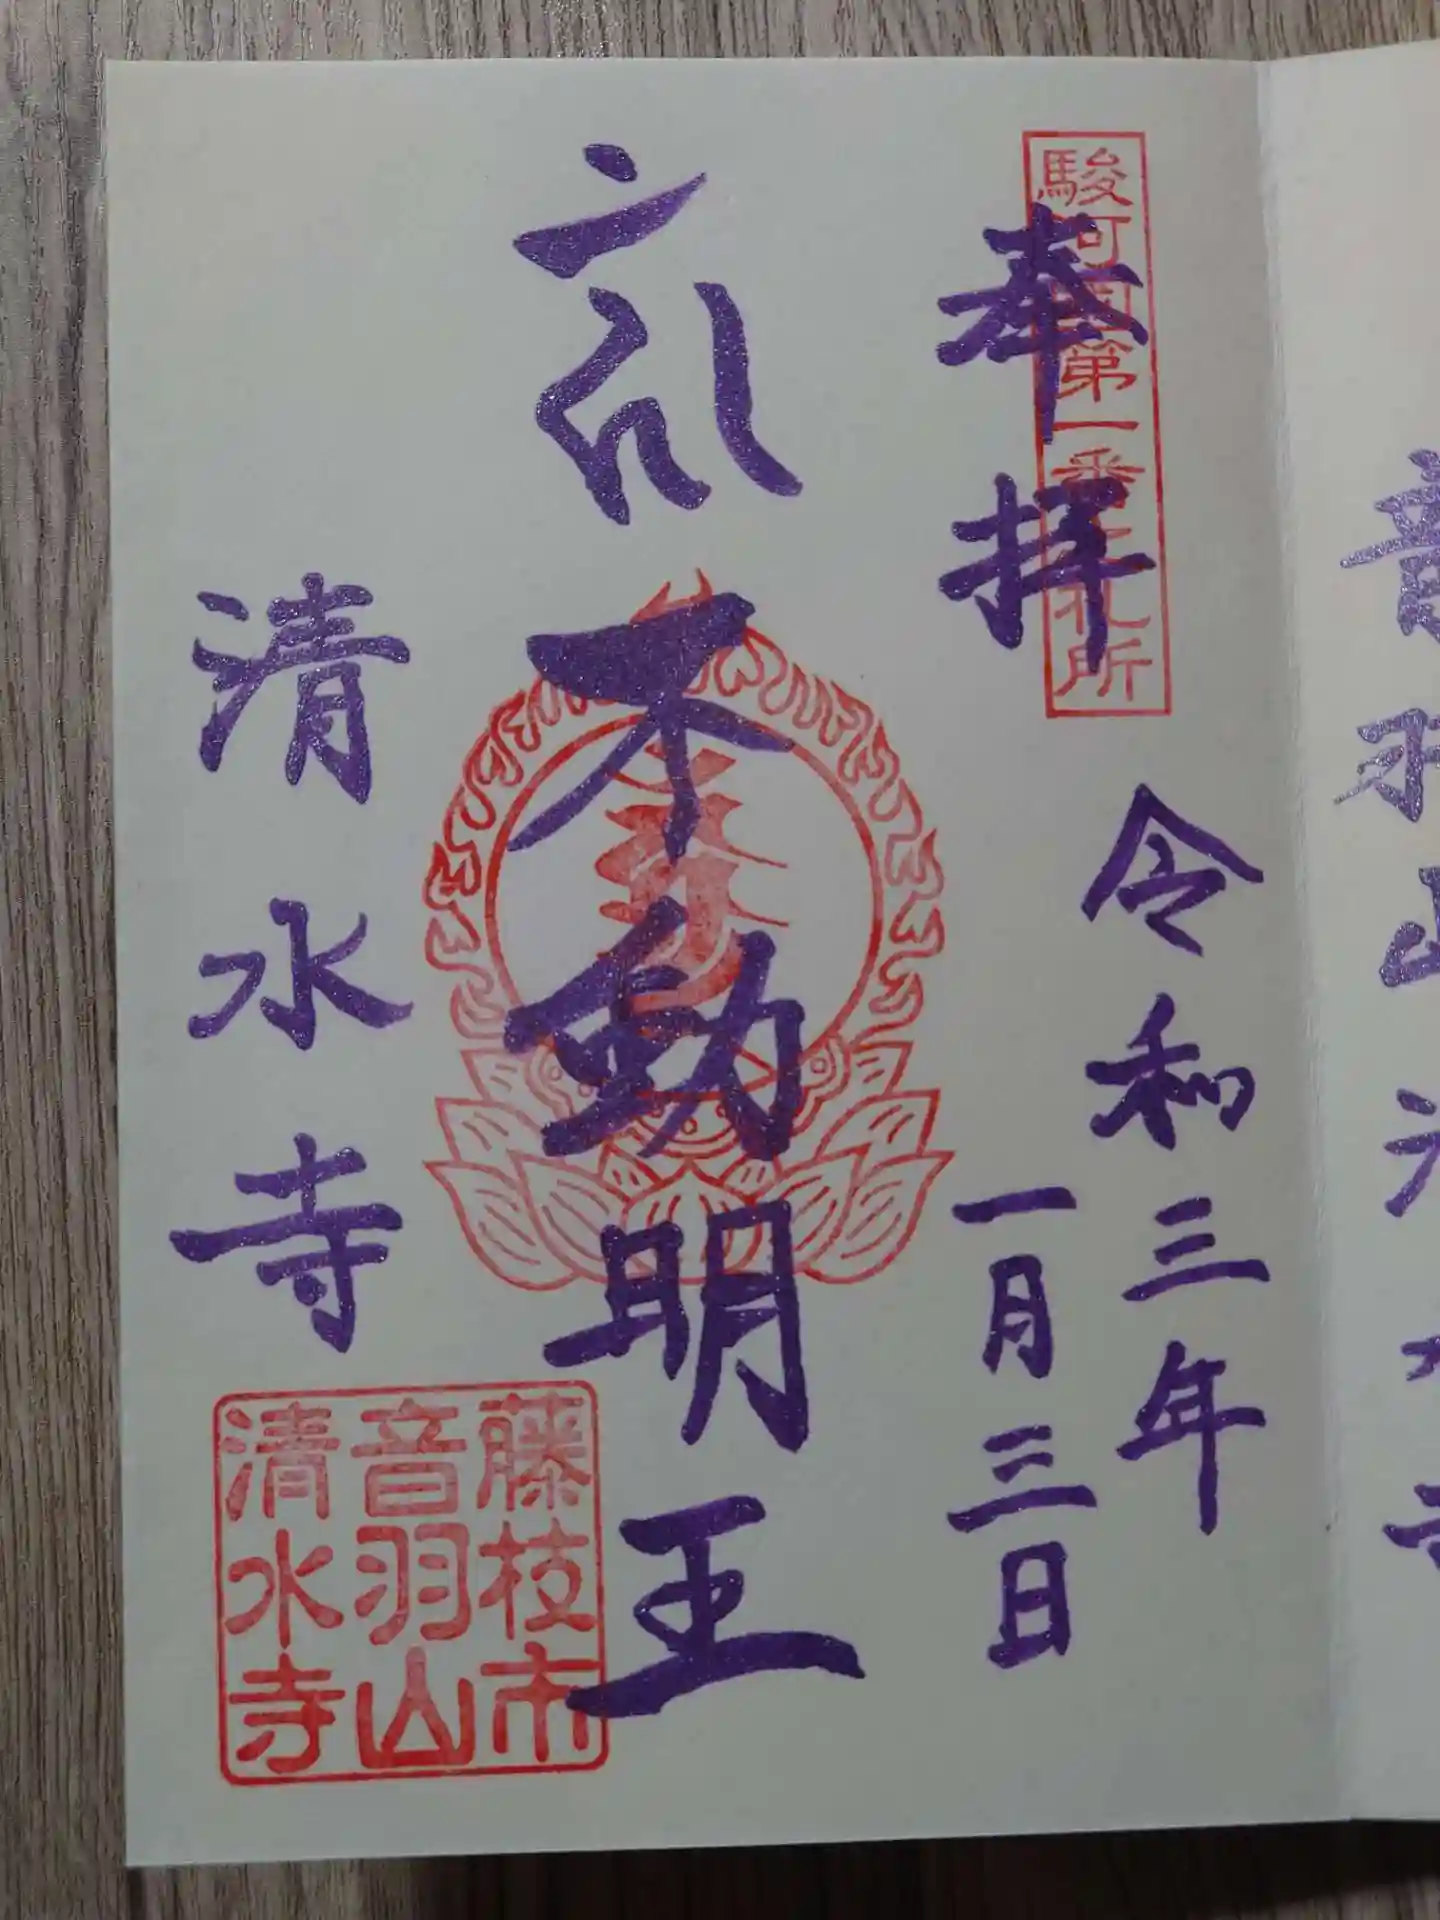 駿河国第一番之札所
奉拝
令和三年
一月三日
不動明王
清水寺
藤枝市
音羽山
清水寺